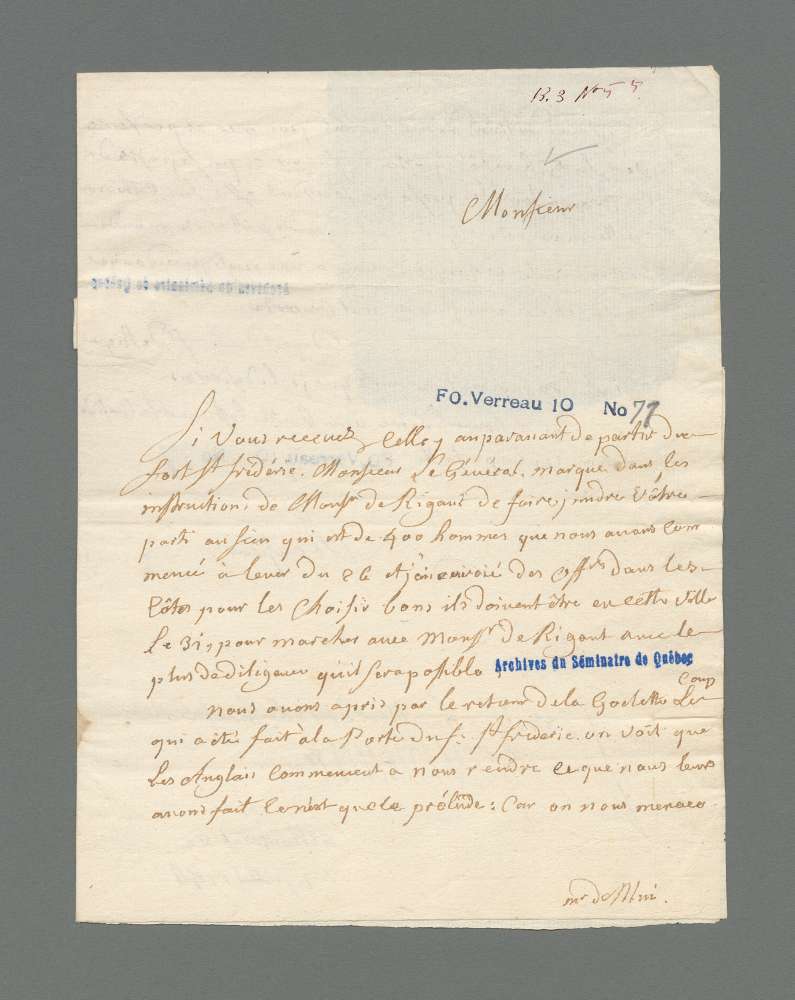 B. 3 No 55
Monsieur
Archives du Séminaire de Québec
FO. Verreau 10 No 77
Si Vous recevez Celle cy auparavant de partir du
fort St frédéric. Monsieur Le Général, marque dans les
instructions de Monsr. de Rigaud de faire joindre Vôtre
parti au sien qui est de 400 hommes que nous avons Com
mencé à lever du 26 et j'ai envoié des offrs dans les
Côtes pour les Choisir bons ils doivent être en cette ville
le 31, pour marcher avec Monsr. de Rigaut avec le
plus de diligence qu'il sera possible
Archives du Séminaire de Québec
nous avons apris par le retour de la Goelette Le Coup
qui a été fait à la Porte du f. St frederic. on voit que
les Anglais Commencent a nous rendre ce que nous leurs
avons fait ce n'est que le prélude : Car on nous menace
mr. de Muï.